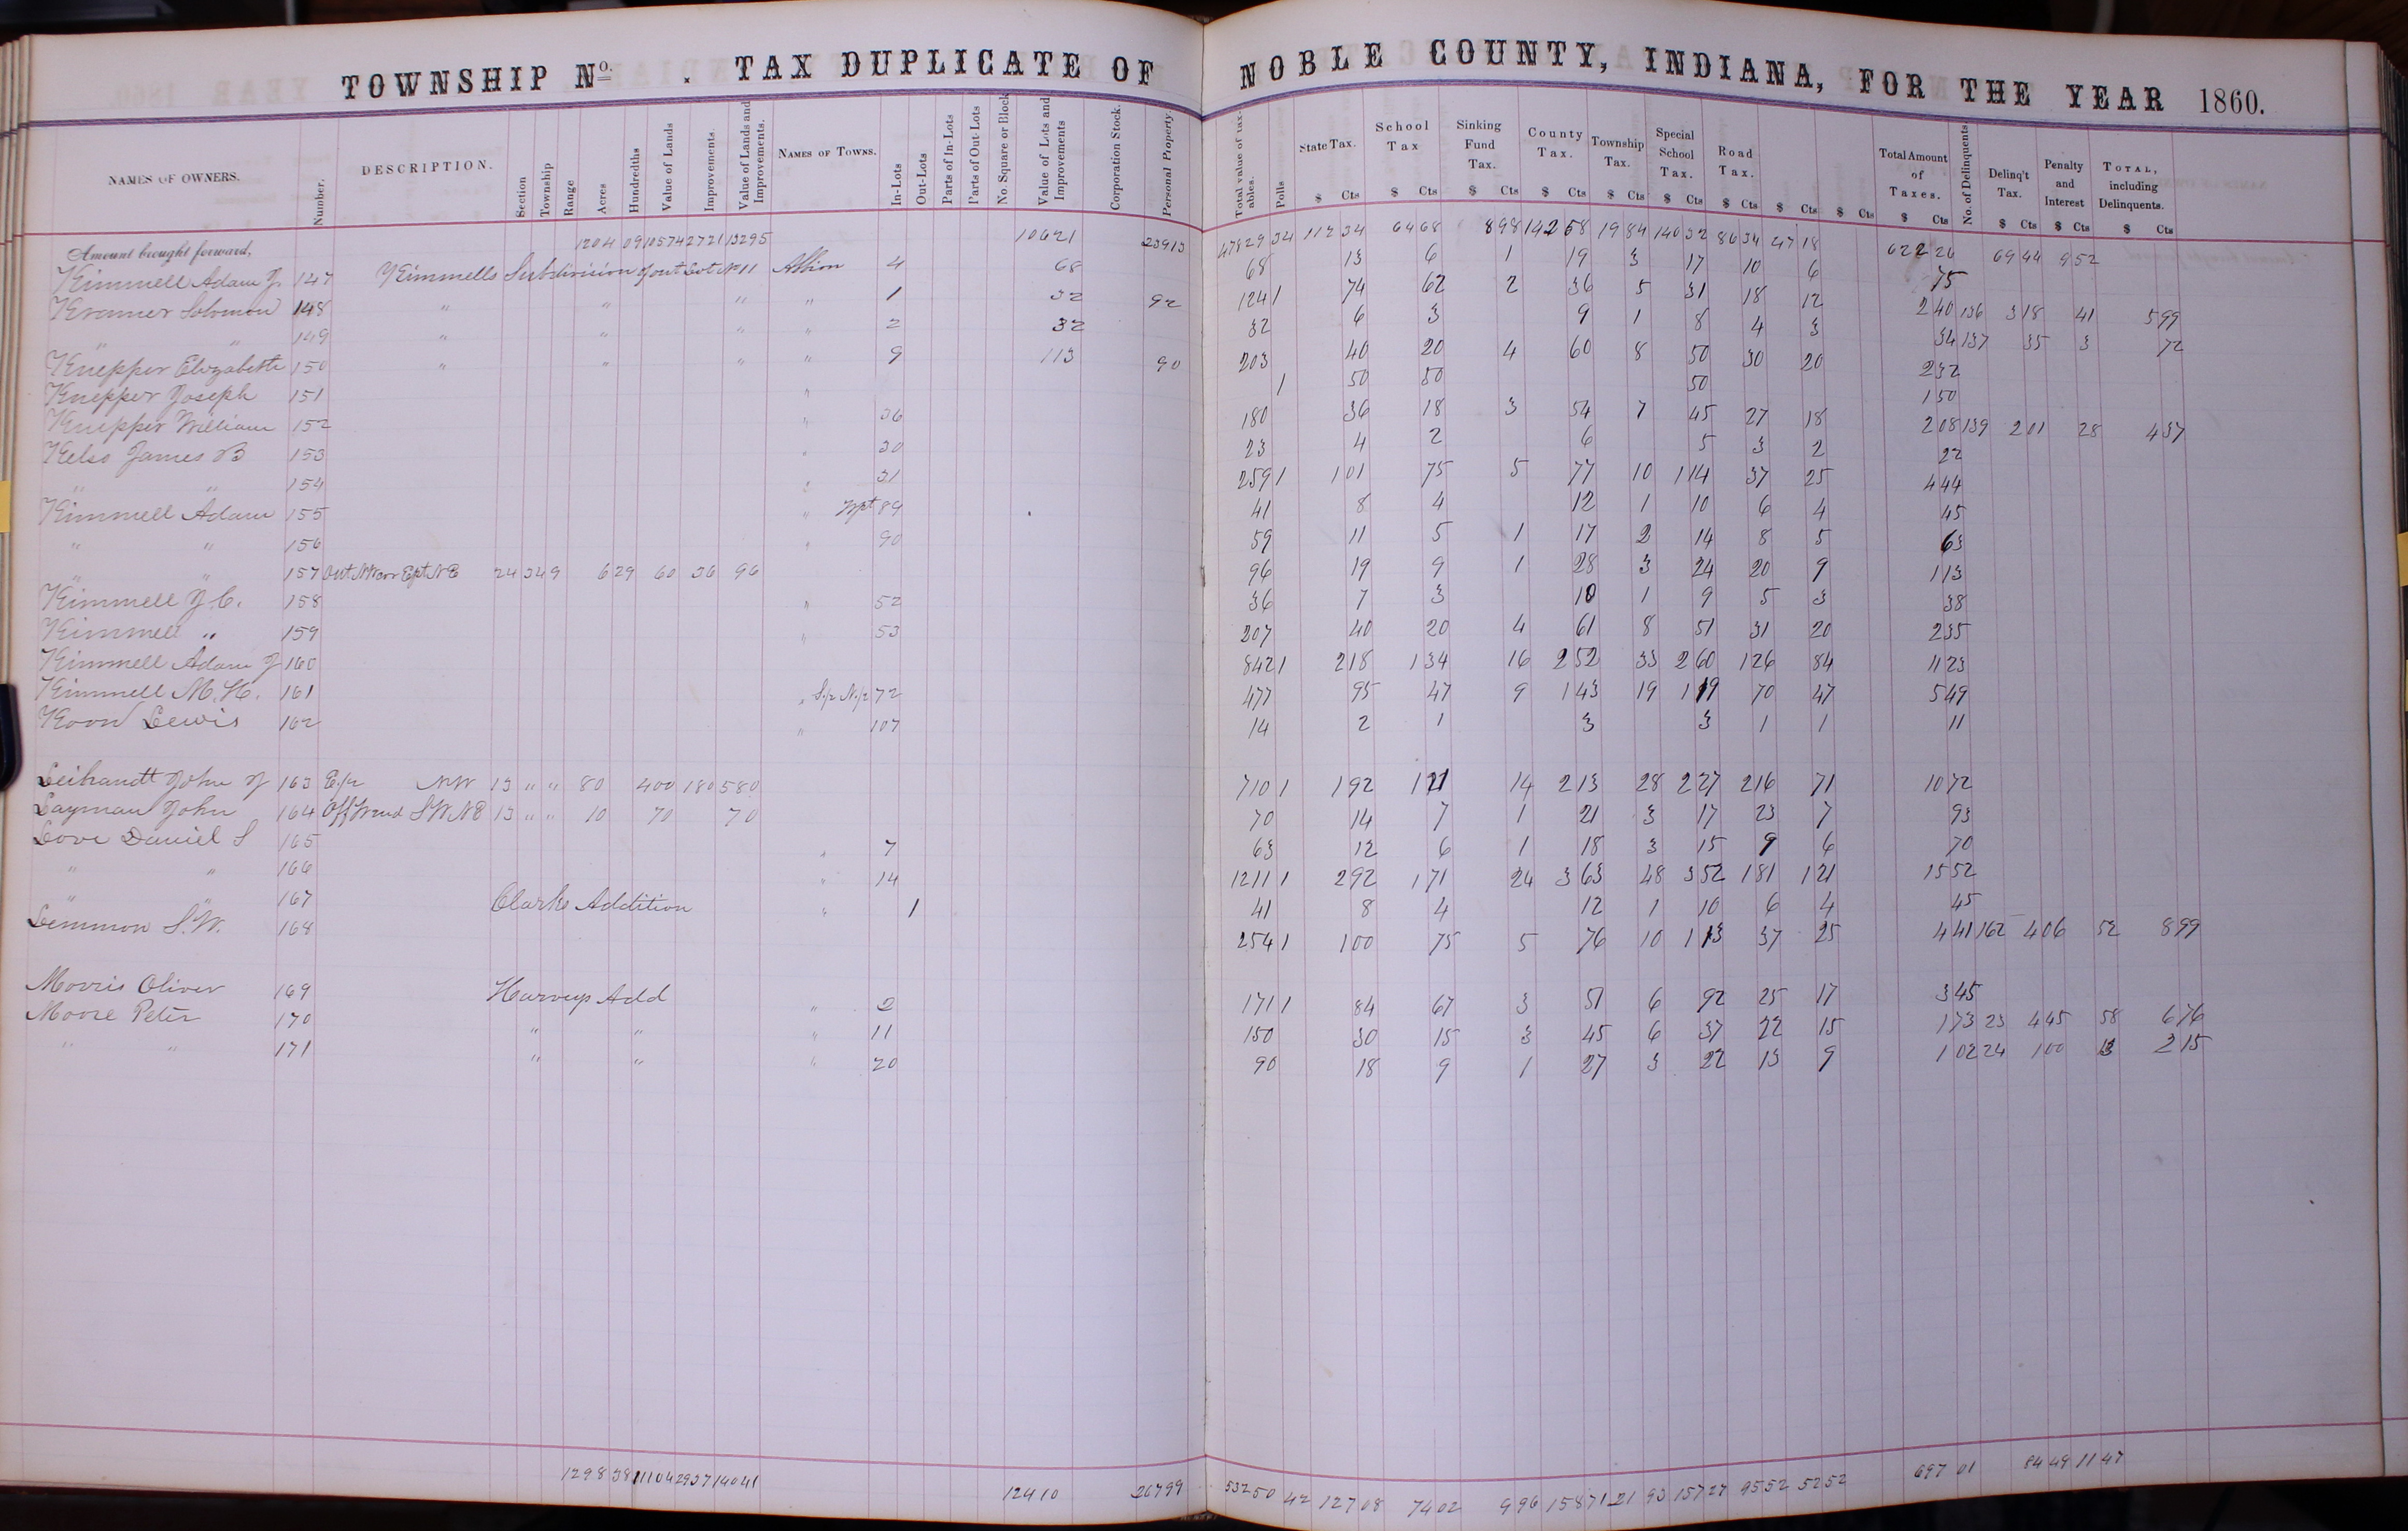 TOWNSHIP No. . TAX DUPLICATE OF NOBLE COUNTY, INDIANA, FOR THE YEAR 1860.
NAMES OF OWNERS. Number. DESCRIPTION. Section Township Range Acres Hundredths Value of Lands Improvements Value of Lands and Improvements. NAMES OF TOWNS. In-Lots Out-Lots Parts of In-Lots Parts of Out-Lots No. Square or Block Value of Lots and Improvements Corporation Stock. Personal Property Total value of taxables. Polls State Tax. School Tax Sinking Fund Tax. County Tax. Township Tax. Special School Tax. Road Tax. Total Amount of Taxes. No. of Delinquents. Delinq't Tax. Penalty and Interest TOTAL, including Delinquents.
$ Cts $ Cts $ Cts $ Cts $ Cts $ Cts $ Cts $ Cts $ Cts $ Cts $ Cts $ Cts $ Cts
Amount brought forward, 1204 09 10574 2721 13295 10621 23913 47829 34 112 34 64 68 8 98 142 68 19 84 140 32 86 34 47 18 622 26 69 44 9 52
Kimmell Adam J. 147 Kimmells Subdivision of out Lot No 11 Albion 4 68 68 13 6 1 19 3 17 10 6 75
Kramer Solomon 148 " " " " 1 32 92 124 1 74 62 2 36 5 31 18 12 2 40 136 3 18 41 5 99
" " 149 " " " " 2 32 32 6 3 9 1 8 4 3 34 137 35 3 72
Knepper Elizabeth 150 " " " " 9 113 90 203 40 20 4 60 8 50 30 20 2 32
Knepper Joseph 151 " 1 50 50 50 1 50
Knepper William 152 " 36 180 36 18 3 54 7 45 27 18 2 08 139 2 01 28 4 37
Kelso James B 153 " 30 23 4 2 6 5 3 2 22
" " 154 " 31 259 1 1 01 75 5 77 10 1 14 37 25 4 44
Kimmell Adam 155 " Wpt 89 41 8 4 12 1 10 6 4 45
" " 156 " 90 59 11 5 1 17 2 14 8 5 63
" " 157 Out. NW cor Ept NE 24 34 9 6 29 60 36 96 96 19 9 1 28 3 24 20 9 1 13
Kimmell J. C. 158 " 52 36 7 3 10 1 9 5 3 38
Kimmell " 159 " 53 207 40 20 4 61 8 51 31 20 2 35
Kimmell Adam J 160 842 1 2 18 1 34 16 2 52 33 2 60 1 26 84 11 23
Kimmell M. H. 161 " S.½ N.½ 72 477 95 47 9 1 43 19 1 19 70 47 5 49
Koon Lewis 162 " 107 14 2 1 3 3 1 1 11
Leihandt John J 163 E.½ NW 13 " " 80 400 180 580 710 1 1 92 1 21 14 2 13 28 2 27 2 16 71 10 72
Layman John 164 Off W end SW NE 13 " " 10 70 70 70 14 7 1 21 3 17 23 7 93
Love Daniel S 165 " 7 63 12 6 1 18 3 15 9 6 70
" " 166 " 14 1211 1 2 92 1 71 24 3 63 48 3 52 1 81 1 21 15 52
" " 167 Clarks Addition " 1 41 8 4 12 1 10 6 4 45
Lemmon S. W. 168 254 1 1 00 75 5 76 10 1 13 37 25 4 41 162 4 06 52 8 99
Morris Oliver 169 Harveys Add " 2 171 1 84 67 3 51 6 92 25 17 3 45
Moore Peter 170 " " " 11 150 30 15 3 45 6 37 22 15 1 73 23 4 45 58 6 76
" " 171 " " " 20 90 18 9 1 27 3 22 13 9 1 02 24 1 00 13 2 15
1298 38 11104 2937 14041 12410 26799 53250 42 127 08 74 02 9 96 158 71 21 93 157 27 95 52 52 52 697 01 84 49 11 47